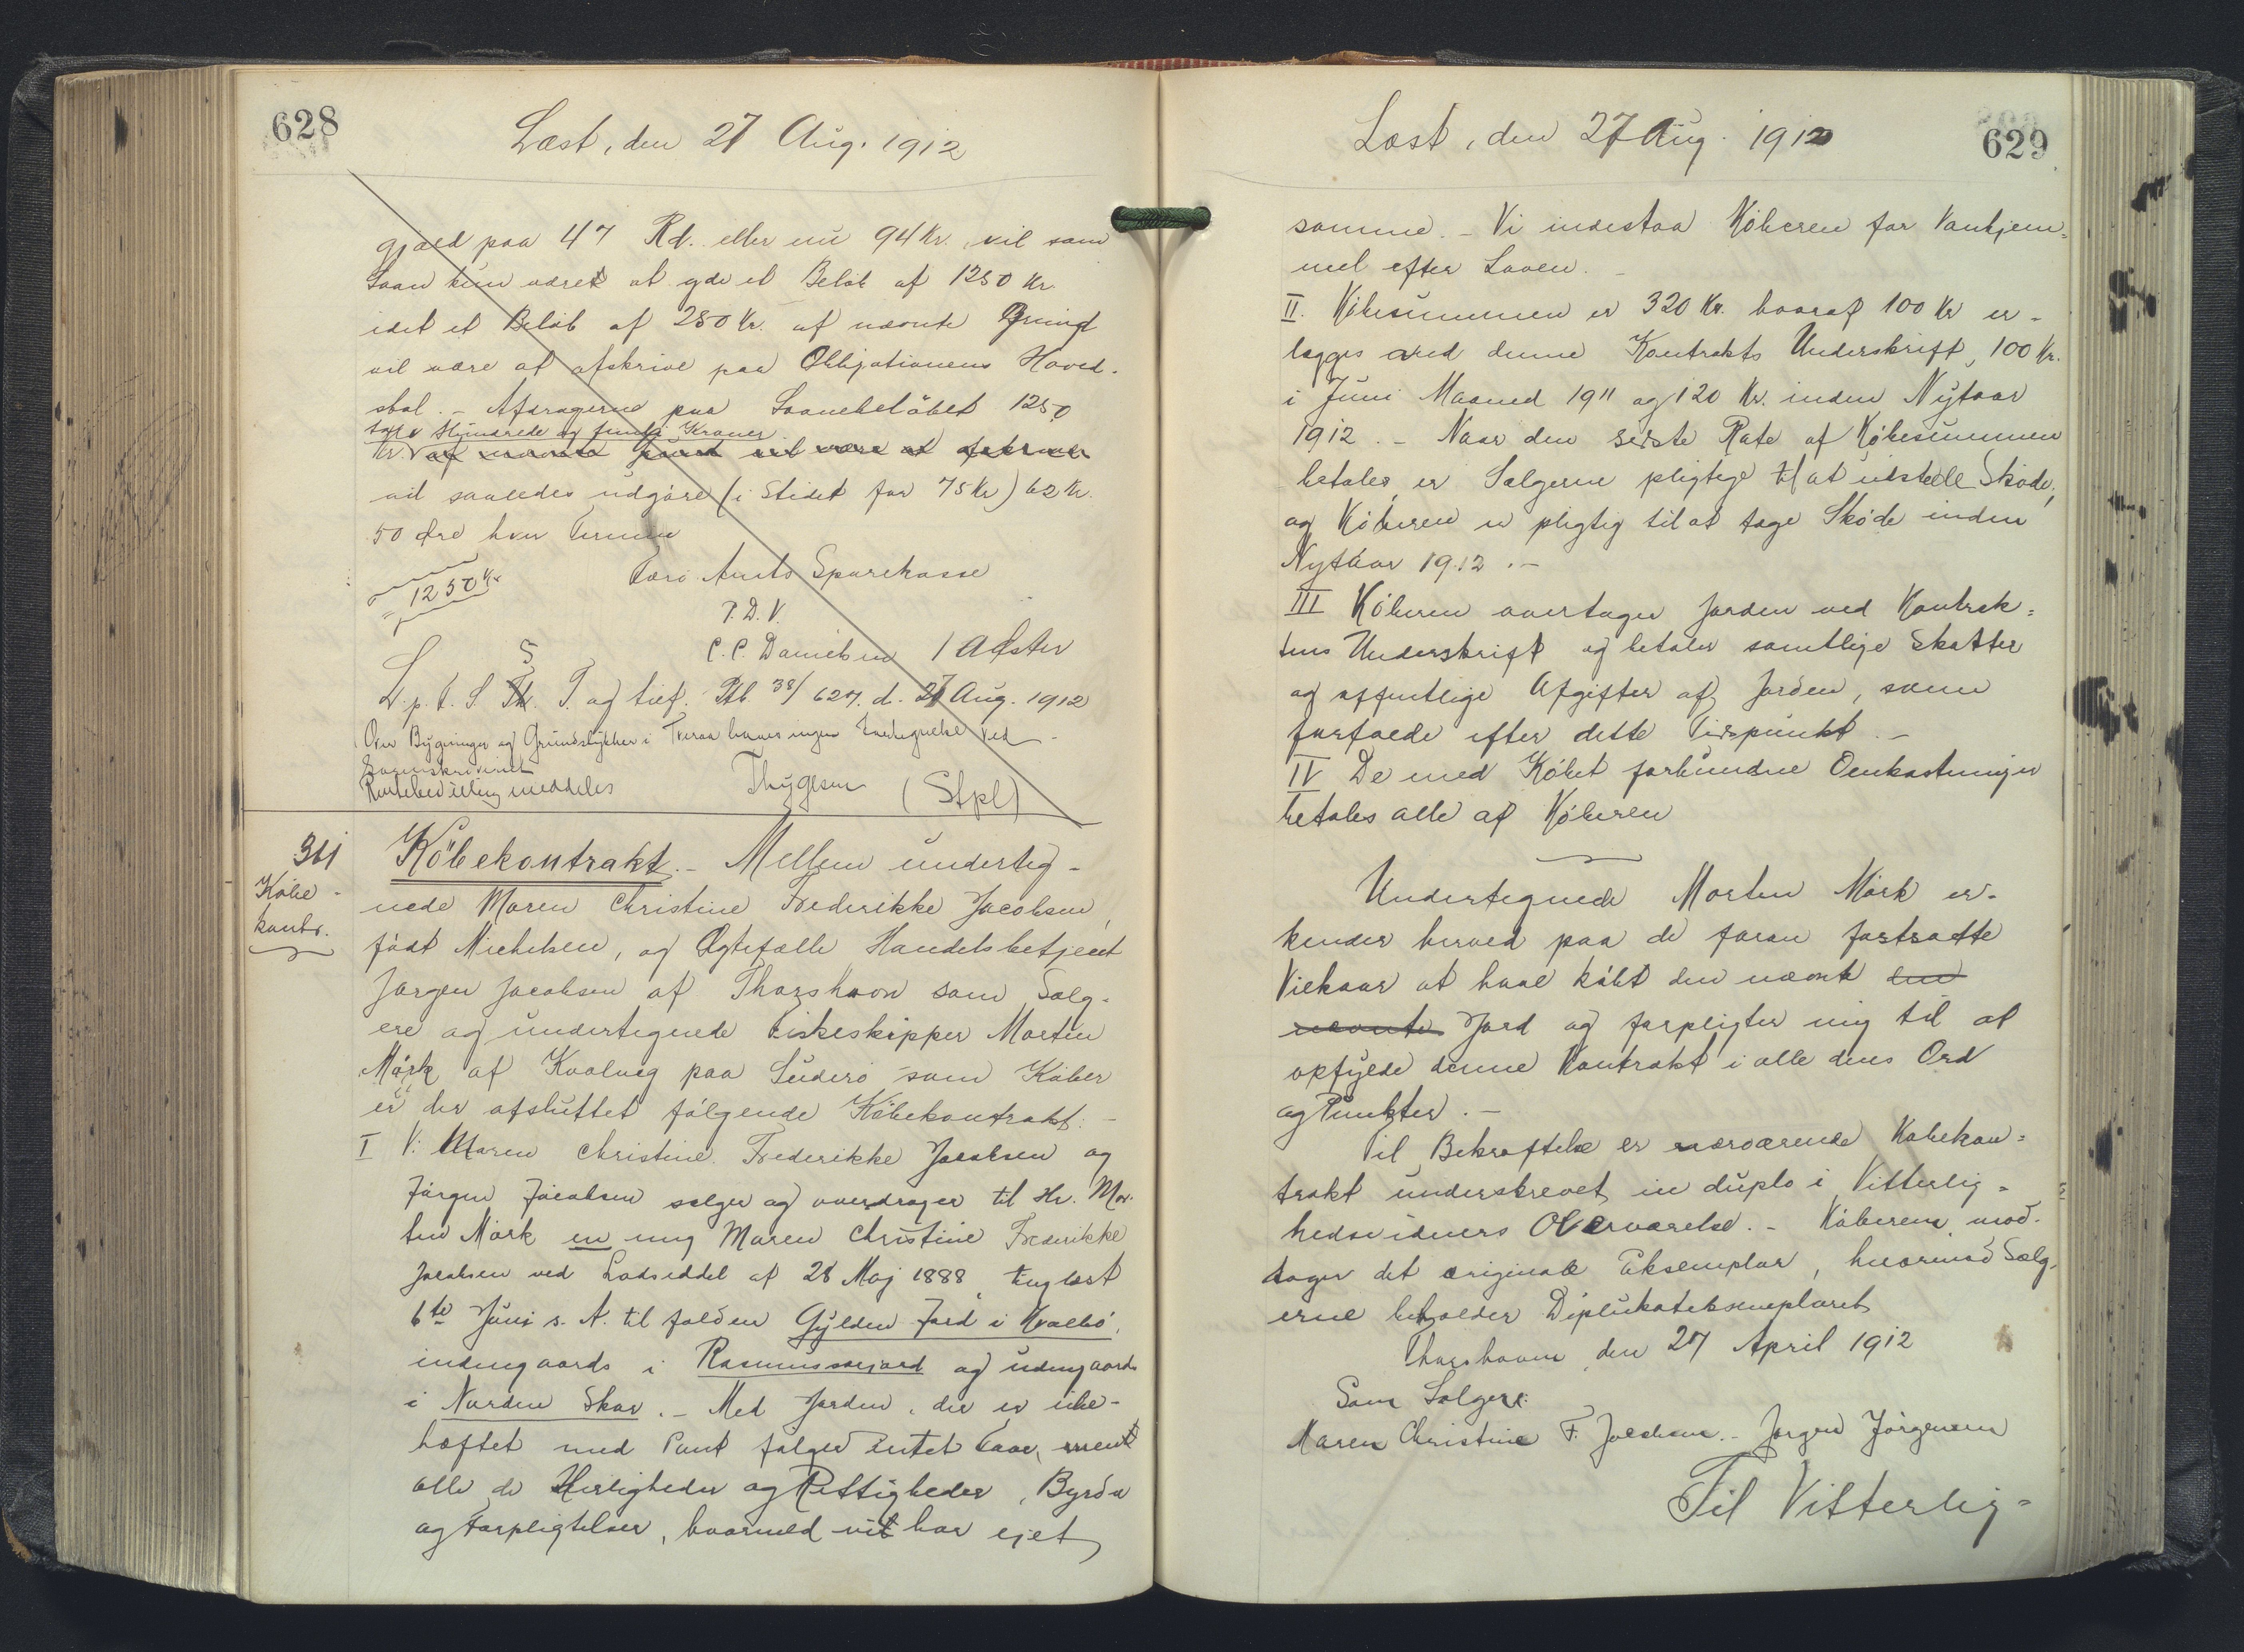 628
Læst, den 27 Aug. 1912
gjæld paa 47 Rd. eller nu 94 Kr. vil som
Laan kun være at yde et Beløb af 1250 Kr.
idet et Beløb af 250 Kr. af nævnte Grund
vil være at afskrive paa Obligationens Hoved-
stol. - Afdragerne paa Laanebeløbet 1250
tolv Hundrede og femti Kroner
Kr. af nævnte Grund vil være at afskrive
vil saaledes udgøre (i Stedet for 75 Kr) 62 Kr.
50 Øre hver Termin
1250 Kr
Færø Amts Sparekasse
P.D.V.
C.C. Danielsen / A
L. p. t. S. S. T. og tilf. Ptb 38/627. d. 27 Aug. 1912
Over Bygninger og Grundstykker i Tveraa haves ingen ved
Sorenskriveriet
meddeles
Thygesen (Stpl)
311
Købe-
kontr.
Købekontrakt. - Mellem underteg-
nede Maren Christine Frederikke Jacobsen,
født Michelsen, og Ægtefælle Handelsbetjent
Jørgen Jacobsen af Thorshavn som Sælg-
ere og undertegnede Fiskeskipper Morten
Mørk af Kvalvig paa Suderø som Køber
er der afsluttet følgende Købekontrakt: -
I Vi Maren Christine Frederikke Jacobsen og
Jørgen Jacobsen sælger og overdrager til Hr. Mor-
ten Mørk en mig Maren Christine Frederikke
Jacobsen ved Lodseddel af 28 Maj 1888, tinglæst
6te Juni s. A. tilfalden Gylden Jord i Kvalbø,
indengaards i Rasmussarjord og udengaards
i Norden Skor. - Med Jorden, der er ube-
hæftet med Pant følger intet Faar, men
alle de Herligheder og Rettigheder, Byrder
og Forpligtelser, hvormed vi har ejet
Læst, den 27 Aug. 1912
629
samme. - Vi indestaa Køberen for Vanhjem-
mel efter Loven. -
II. Købesummen er 320 Kr. hvoraf 100 Kr er-
lægges ved denne Kontrakts Underskrift, 100 Kr.
i Juni Maaned 1911 og 120 Kr. inden Nytaar
1912. - Naar den sidste Rate af Købesummen
betales, er Sælgerne pligtige til at udstede Skøde,
og Køberen er pligtig til at tage Skøde inden
Nytaar 1912. -
III Køberen overtager Jorden ved Kontrak-
tens Underskrift og betaler samtlige Skatter
og offentlige Afgifter af Jorden, som
forfalde efter dette Tidspunkt. -
IV De med Købet forbundne Omkostninger
betales alle af Køberen
Undertegnede Morten Mørk er-
kender herved paa de foran fastsatte
Vilkaar at have købt den nævnte den
nævnte Jord og forpligter mig til at
opfylde denne Kontrakt i alle dens Ord
og Punkter. -
Til Bekræftelse er nærværende Købekon-
trakt underskrevet in duplo i Vitterlig-
hedsvidners Overværelse. - Køberen mod-
tager det originale Eksemplar, hvorimod Sælg-
erne beholder Duplikateksemplaret
Thorshavn, den 27 April 1912
Som Sælgere:
Maren Christine F. Jacobsen. - Jørgen Jørgensen
Til Vitterlig-